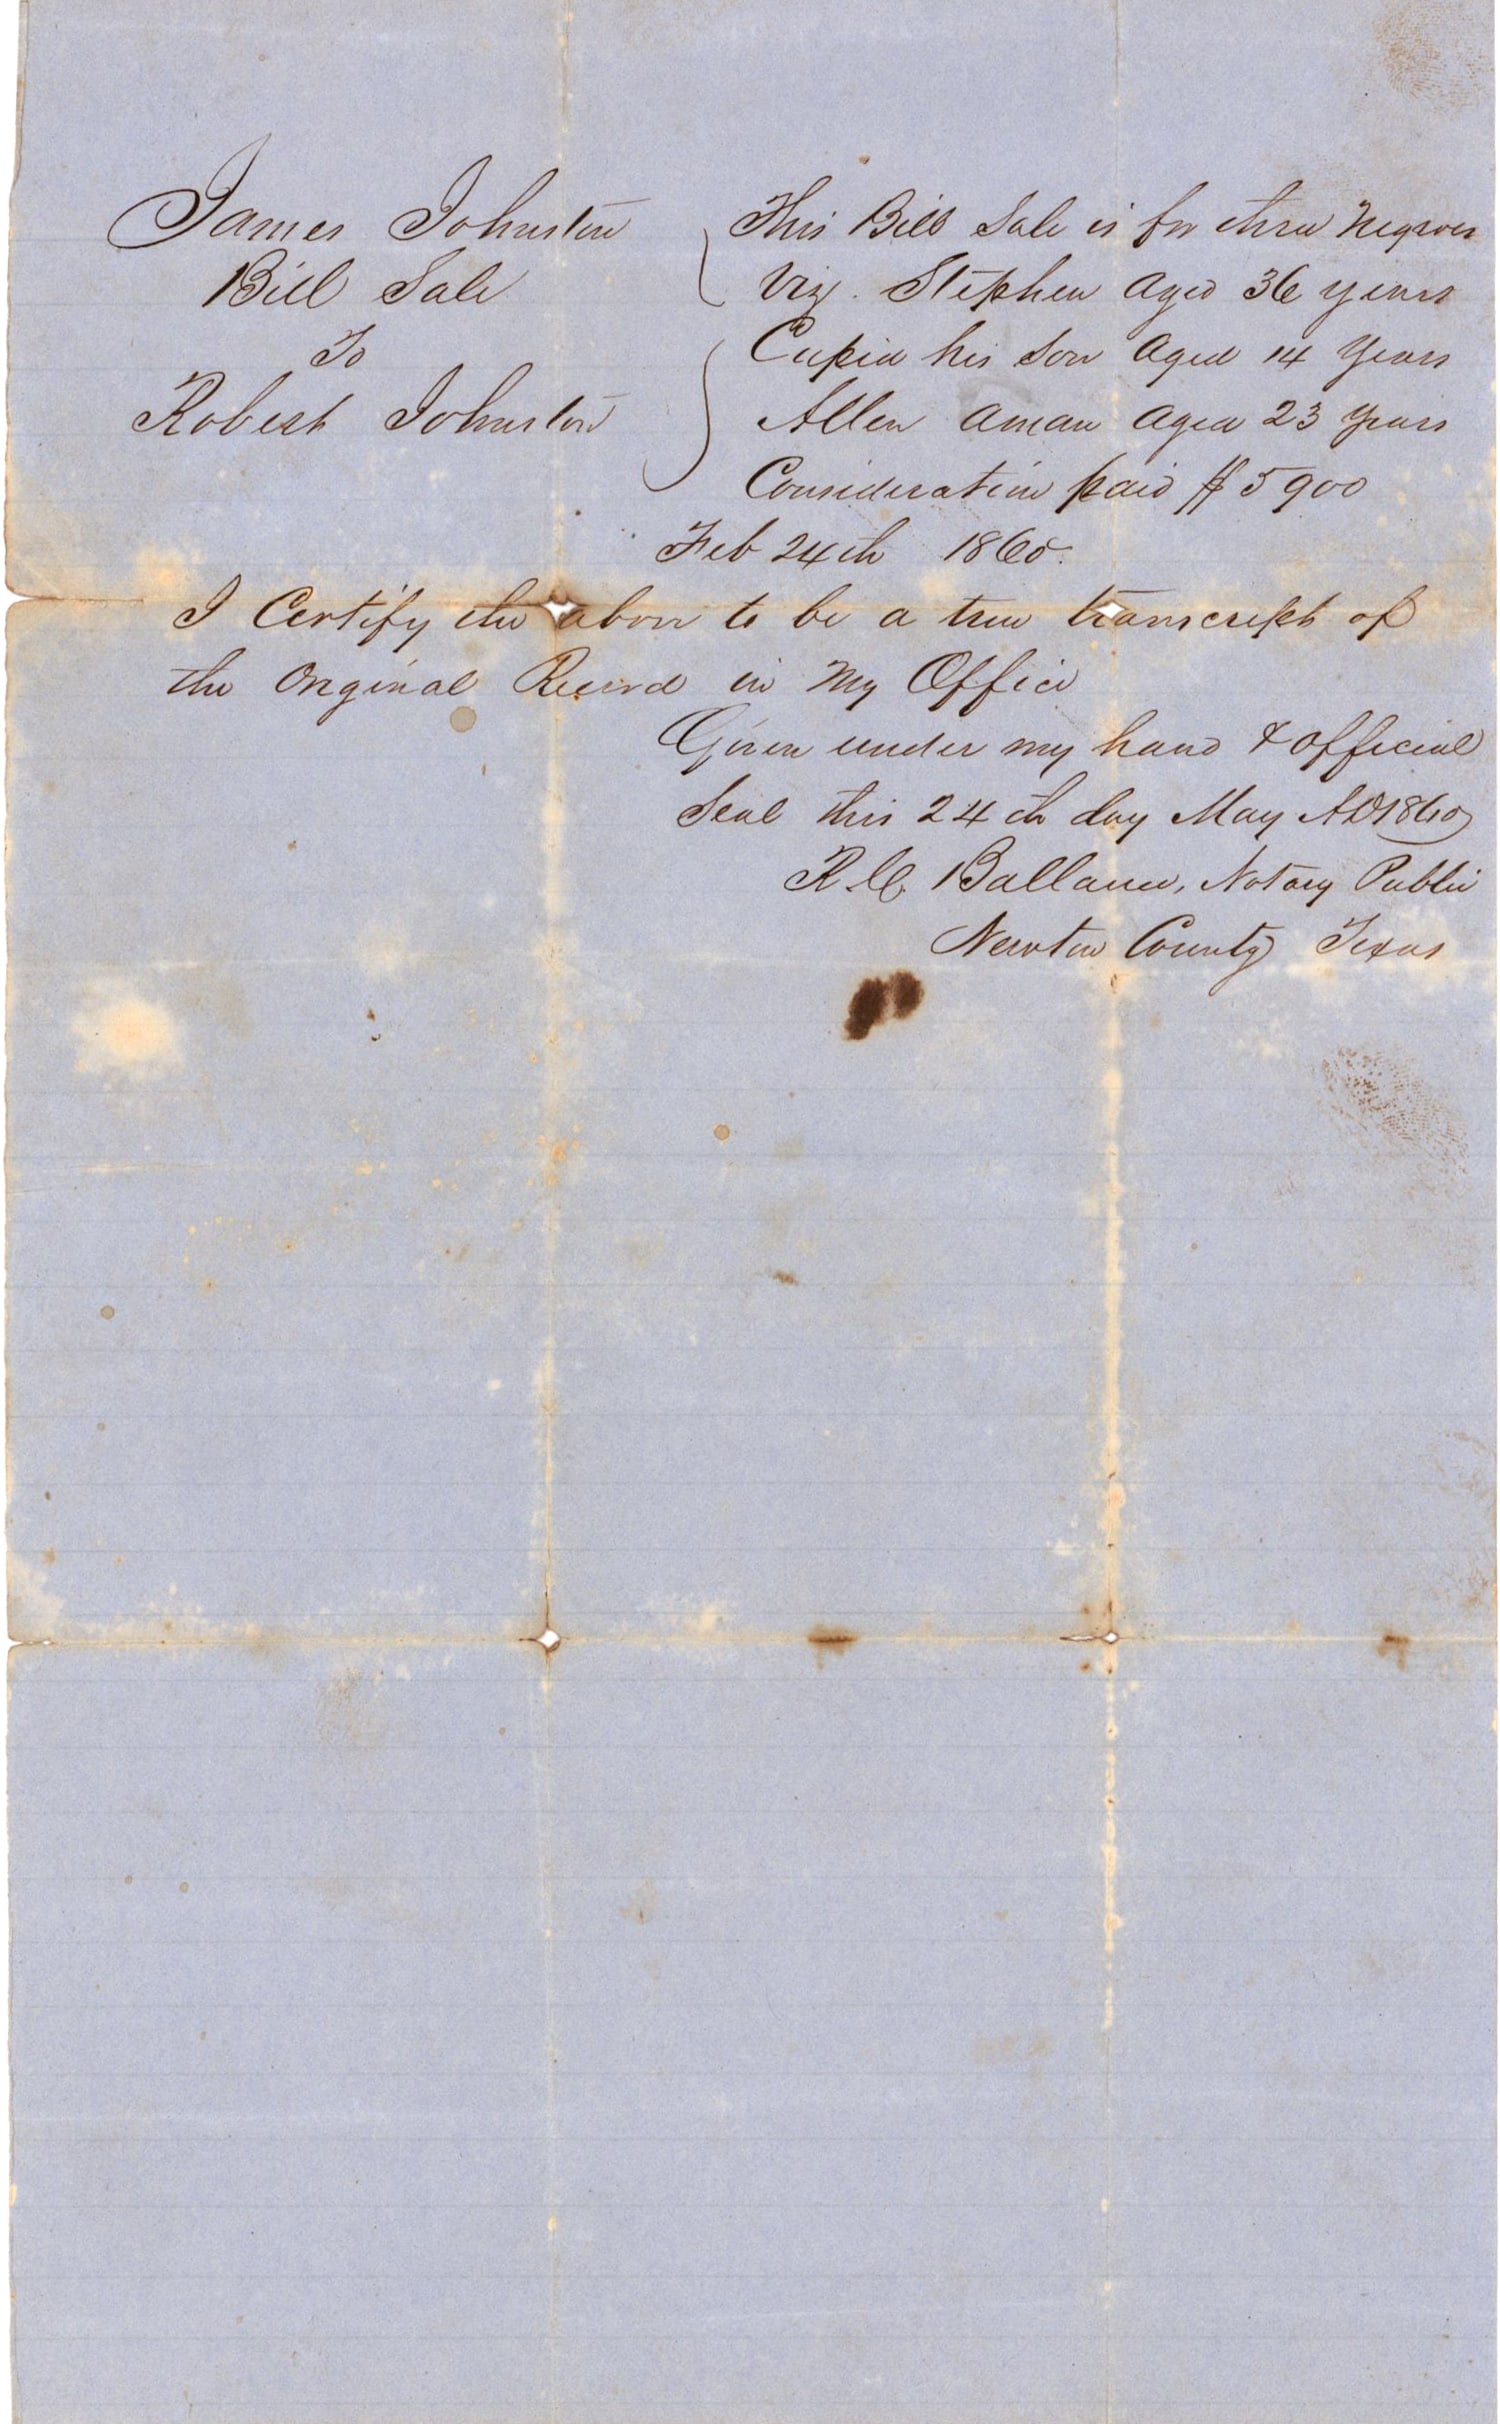 James Johnston
Bill Sale
To
Robert Johnston
This Bill Sale is for three Negroes
Viz. Stephen Aged 36 years
Cupid his Son Aged 14 Years
Allen aman Aged 23 Years
Consideration paid $5900
Feb 24th 1860.
I Certify the above to be a true transcript of
the Original Record in My Office
Given under my hand & official
Seal this 24th day May AD 1860
R. C. Ballance, Notary Public
Newton County Texas